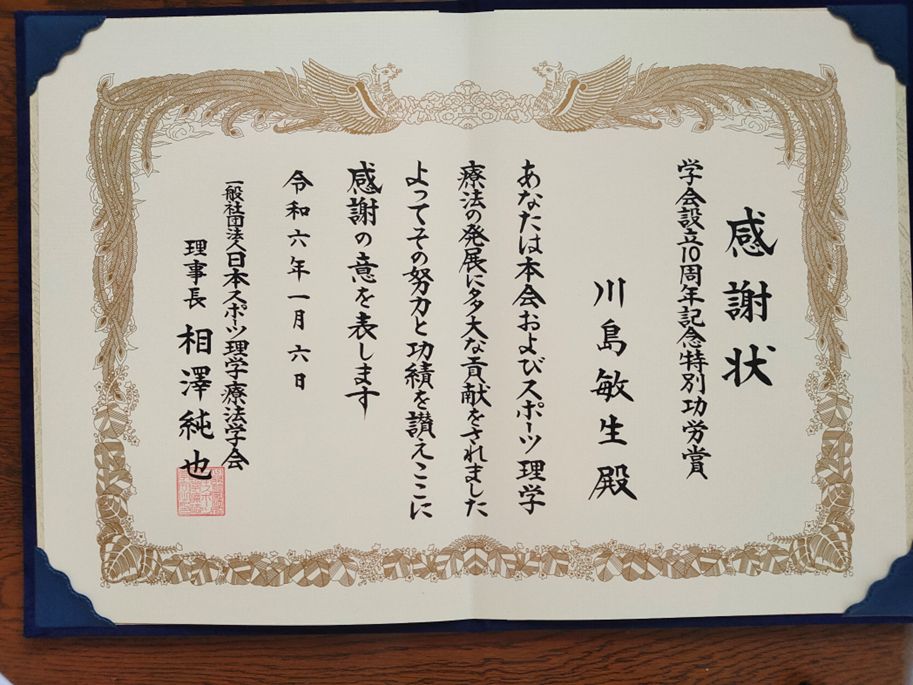 感謝状
学会設立10周年記念特別功労賞
川島敏生殿
あなたは本会およびスポーツ理学
療法の発展に多大な貢献をされました
よってその努力と功績を讃えここに
感謝の意を表します
令和六年一月六日
一般社団法人日本スポーツ理学療法学会
理事長 相澤純也